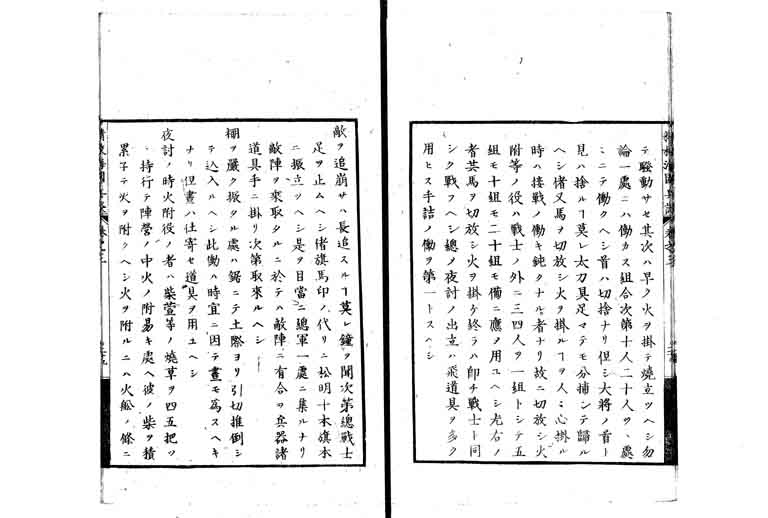 テ騒動サセ其次ハ早ク火ヲ掛テ焼立ツヘシ勿
論一處ニハ働カス組合次第十人二十人ツヽ處
ミニテ働クヘシ首ハ切捨ナリ但シ大将ノ首ト
見ハ捨ルヿ莫レ太刀具足マテモ分捕シテ歸ル
ヘシ偖又馬ヲ切放シ火ヲ掛ルヿヲ人ミ心掛ル
時ハ接戦ノ働キ鈍クナル者ナリ故ニ切放シ火
附等ノ役ハ戦士ノ外ニ三四人ヲ一組トシテ五
組モ十組モ二十組モ備ニ應ノ用ユヘシ光右ノ
者其馬ヲ切放シ火ヲ掛ケ終ラハ即チ戦士ト同
シク戦フヘシ總ノ夜討ノ出立ハ飛道具ヲ多ク
用ヒス手詰ノ働ヲ第一トスヘシ
敵ヲ追崩サハ長追スルヿ莫レ鐘ヲ聞次第總戦士
足ヲ止ムヘシ偖旗馬印ノ代リニ松明十本旗本
ニ振立ツヘシ是ヲ目當ニ總軍一處ニ集ルナリ
敵陣ヲ乗取タルニ於テハ敵陣ニ有合ヲ兵器諸
道具手ニ掛リ次第取來ルヘシ
柵ヲ嚴ク振タル處ハ鋸ニテ土際ヨリ引切推倒シ
テ込入ルヘシ此働ハ時宜ニ因テ晝モ為スヘキ
ナリ但晝ハ仕寄セ道具ヲ用ユヘシ
夜討ノ時火附役ノ者ハ柴萱等ノ焼草ヲ四五把ツ
ヽ持行テ陣營ノ中火ノ附易キ處ヘ彼ノ柴ヲ積
累子テ火ヲ附クヘシ火ヲ附ルニハ火舩ノ條ニ